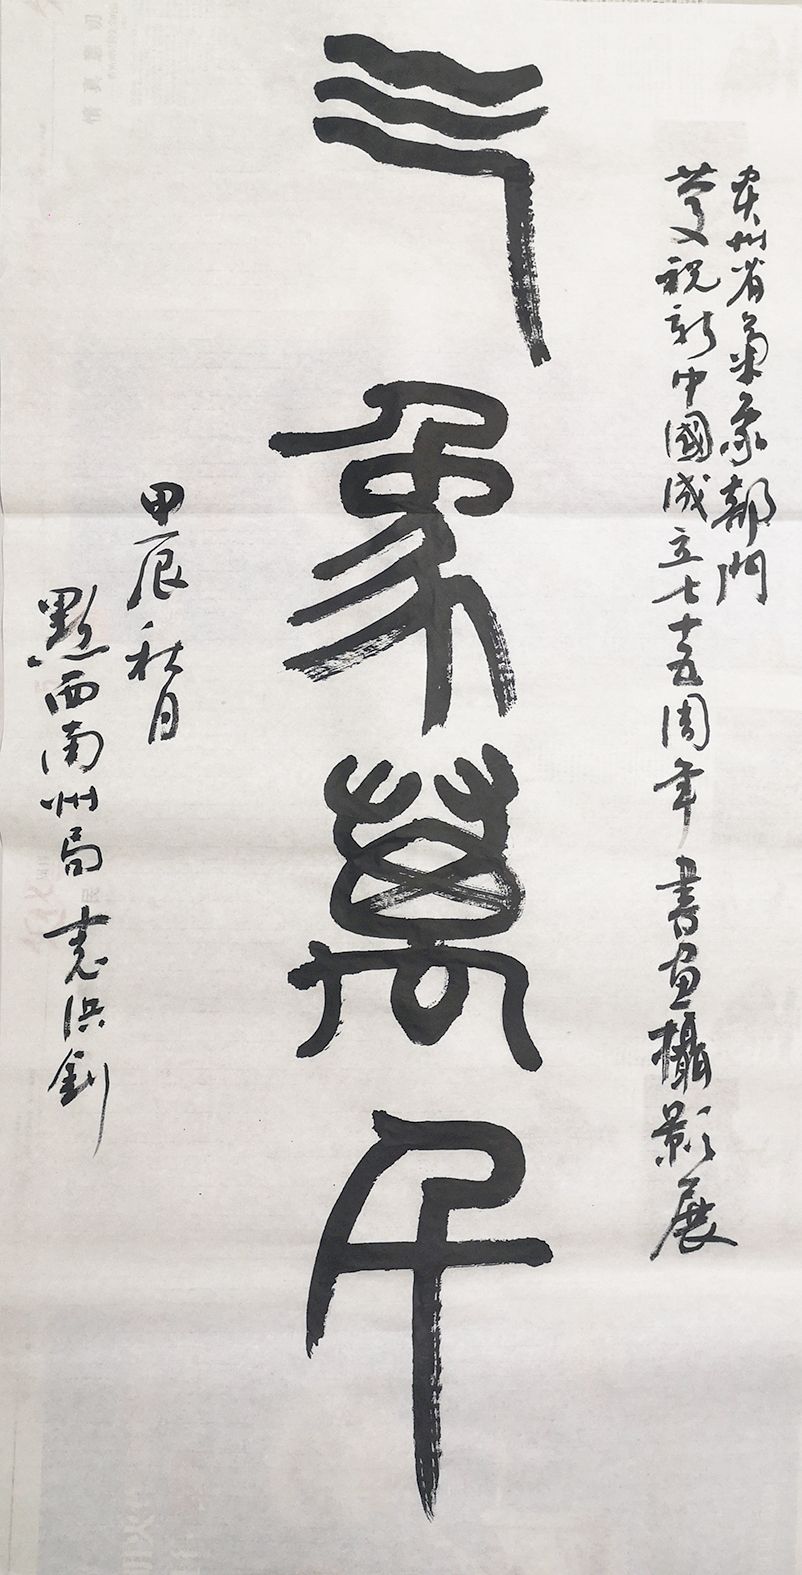 贵州省氣象部門
慶祝新中國成立七十五周年書画攝影展
气象萬千
甲辰秋月
黔西南州局袁洪釗